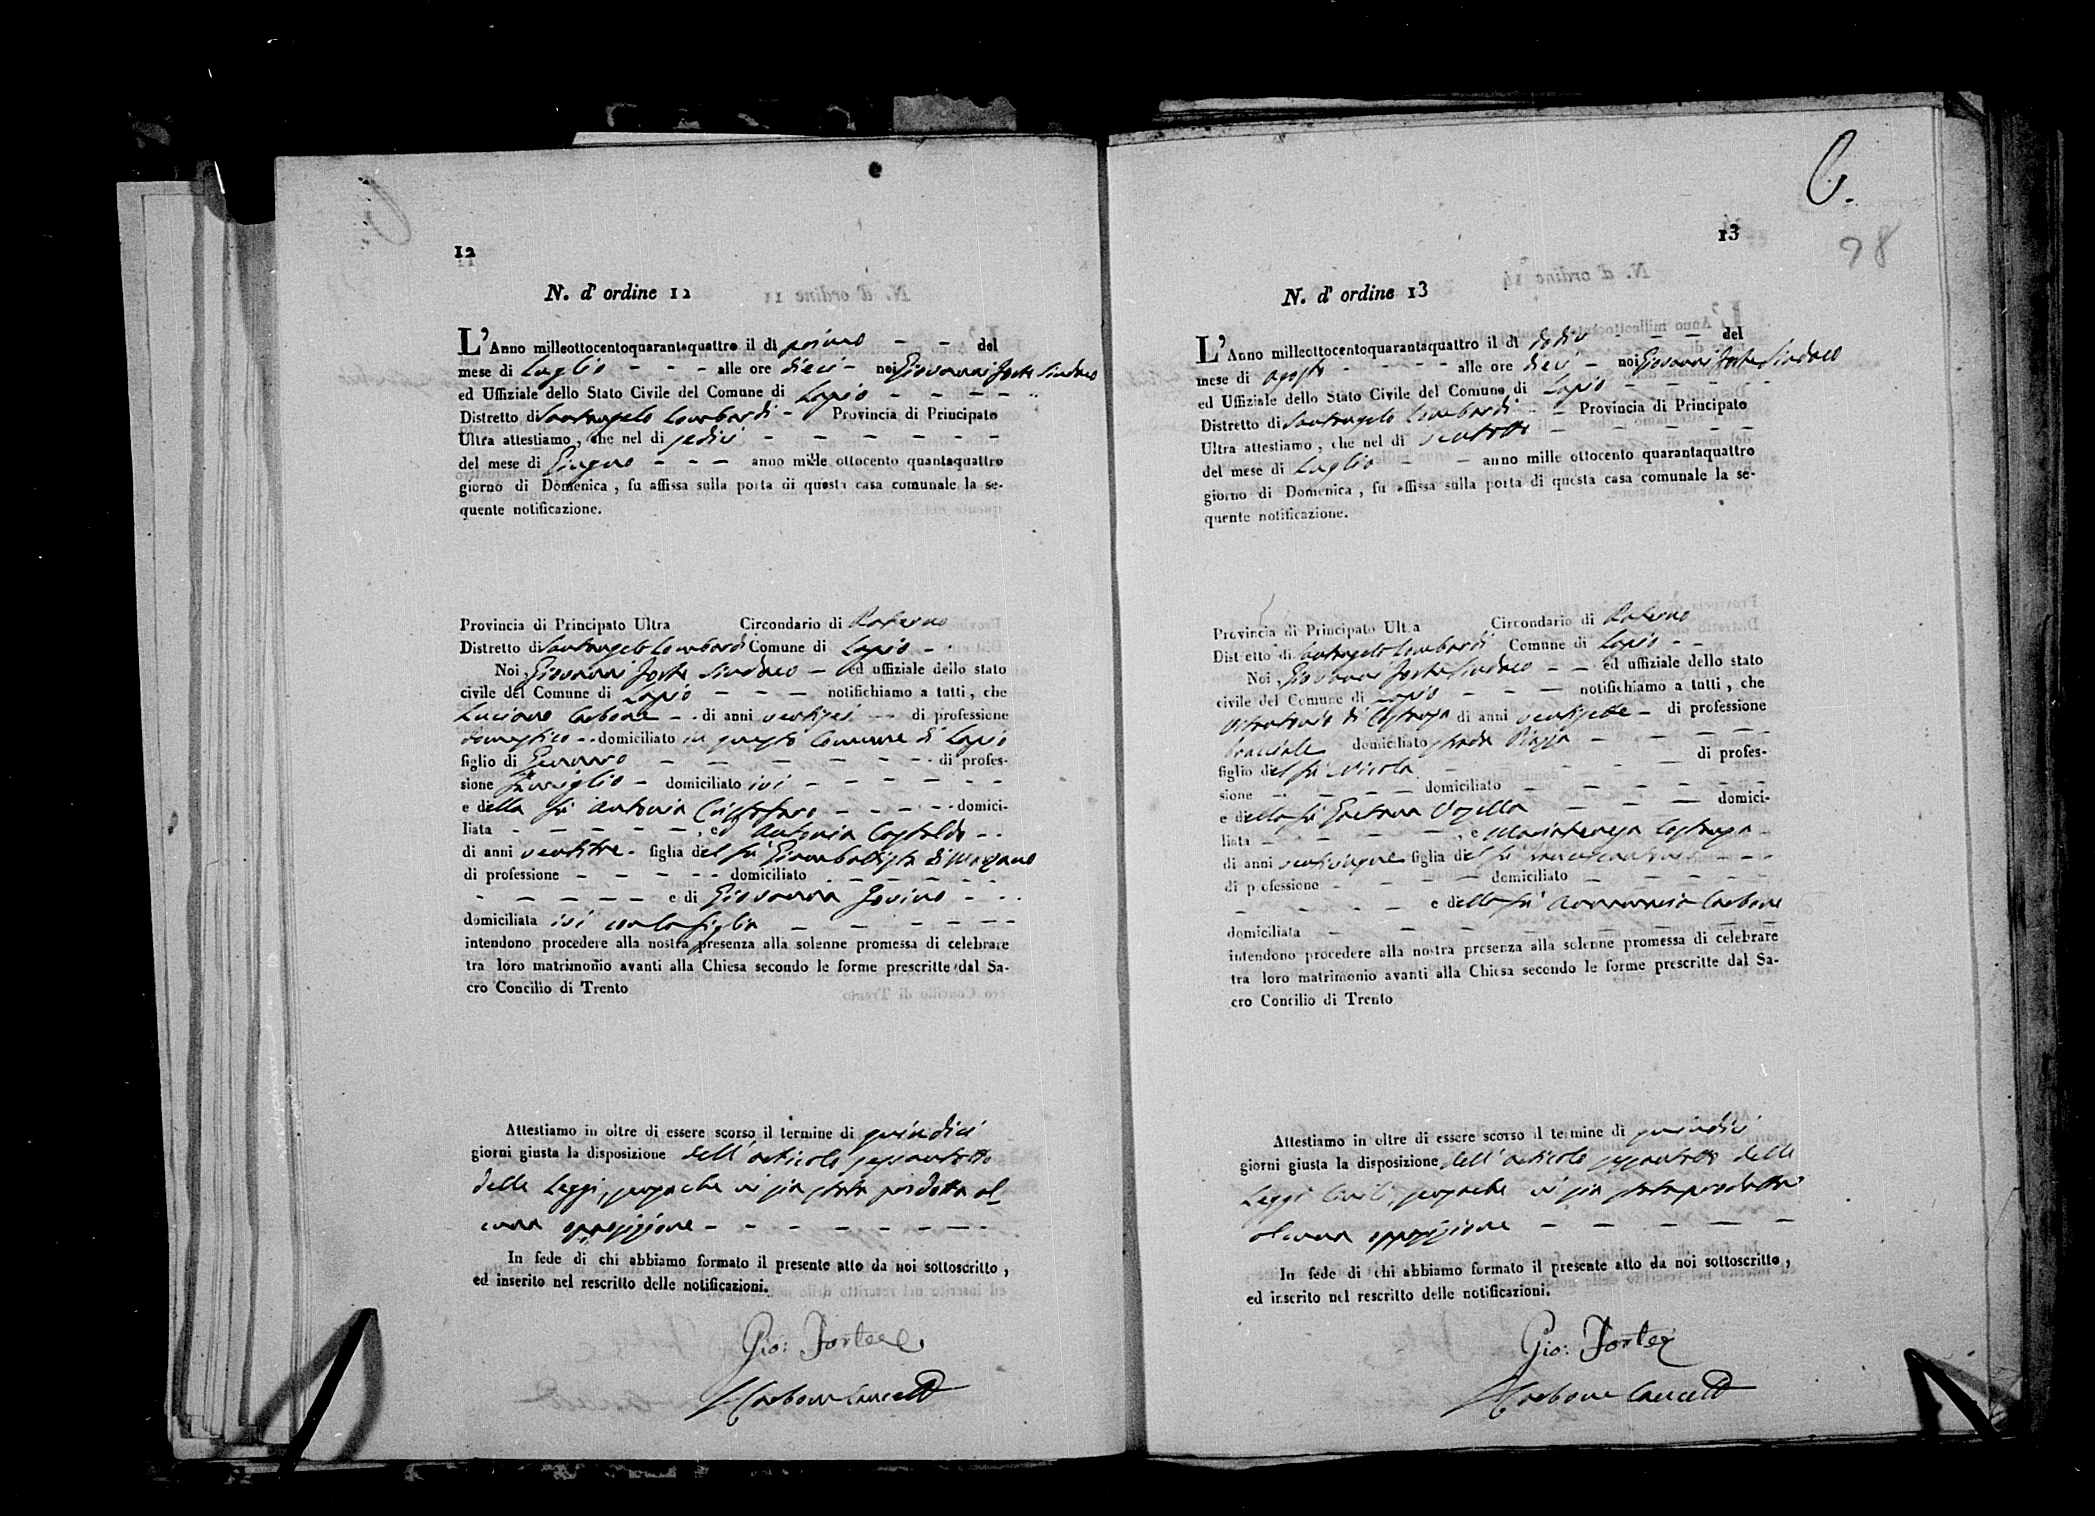 12
N. d' ordine 12
L'Anno milleottocentoquarantaquattro il di primo - - del
mese di Luglio - - - alle ore dieci - noi Giovanni Forte Sindaco
ed Uffiziale dello Stato Civile del Comune di Lapio - - - -
Distretto di Santangelo Lombardi - Provincia di Principato
Ultra attestiamo, che nel di sedici - - - - - -
del mese di Giugno - - - anno mille ottocento quantaquattro
giorno di Domenica, fu affissa sulla porta di questa casa comunale la se-
quente notificazione.
Provincia di Principato Ultra Circondario di Paterno
Distretto di Santangelo Lombardi Comune di Lapio - -
Noi Giovanni Forte Sindaco - ed uffiziale dello stato
civile del Comune di Lapio - - - notifichiamo a tutti, che
Luciano Carbone - - di anni ventisei - - di professione
domestico - - domiciliato in questo Comune di Lapio
figlio di Gennaro - - - - - - - di profes-
sione domiciliato ivi - - - - - -
e della fu Antonia Cristofaro - - - - domici-
liata - - - - - , e Antonia Castaldo - -
di anni ventitre - figlia del fu Giambattista
di professione - - - - - domiciliato - - - - - -
- - - - - e di Giovanna Iovino - - -
domiciliata ivi con la figlia - - - - - -
intendono procedere alla nostra presenza alla solenne promessa di celebrare
tra loro matrimonio avanti alla Chiesa secondo le forme prescritte dal Sa-
cro Concilio di Trento
Attestiamo in oltre di essere scorso il termine di quindici
giorni giusta la disposizione dell' articolo sessantotto
delle Leggi, senza che vi sia stata prodotta al-
cuna opposizione - - - - - - - -
In fede di chi abbiamo formato il presente atto da noi sottoscritto,
ed inserito nel rescritto delle notificazioni.
Gio: Forte
Carbone Cancell
13
98
N. d' ordine 13
L'Anno milleottocentoquarantaquattro il di dodici - - - del
mese di Agosto - - - - alle ore dieci - noi Giovanni Forte Sindaco
ed Uffiziale dello Stato Civile del Comune di Lapio - - - - -
Distretto di Santangelo Lombardi - - Provincia di Principato
Ultra attestiamo, che nel di ventotto - - - - - -
del mese di Luglio - - - anno mille ottocento quarantaquattro
giorno di Domenica, fu affissa sulla porta di questa casa comunale la se-
quente notificazione.
Provincia di Principato Ultra Circondario di Paterno
Distretto di Santangelo Lombardi Comune di Lapio - -
Noi Giovanni Forte Sindaco - - ed uffiziale dello stato
civile del Comune di Lapio - - - notifichiamo a tutti, che
di anni ventisette - di professione
bracciale domiciliato strada Piazza - - - - -
figlio del fu Nicola - - - - - di profes-
sione - - - - domiciliato - - - - -
e della fu Gaetana - - - domici-
liata - - - - - , e Mariateresa
di anni venticinque figlia del fu - - -
di professione - - - - domiciliato - - - - -
- - - - - e della fu Carbone
domiciliata - - - - - - - -
intendono procedere alla nostra presenza alla solenne promessa di celebrare
tra loro matrimonio avanti alla Chiesa secondo le forme prescritte dal Sa-
cro Concilio di Trento
Attestiamo in oltre di essere scorso il termine di quindici
giorni giusta la disposizione dell' articolo sessantotto delle
Leggi Civili, senza che vi sia stata prodotta
alcuna opposizione - - - - - -
In fede di chi abbiamo formato il presente atto da noi sottoscritto,
ed inserito nel rescritto delle notificazioni.
Gio: Forte
Carbone Cancell